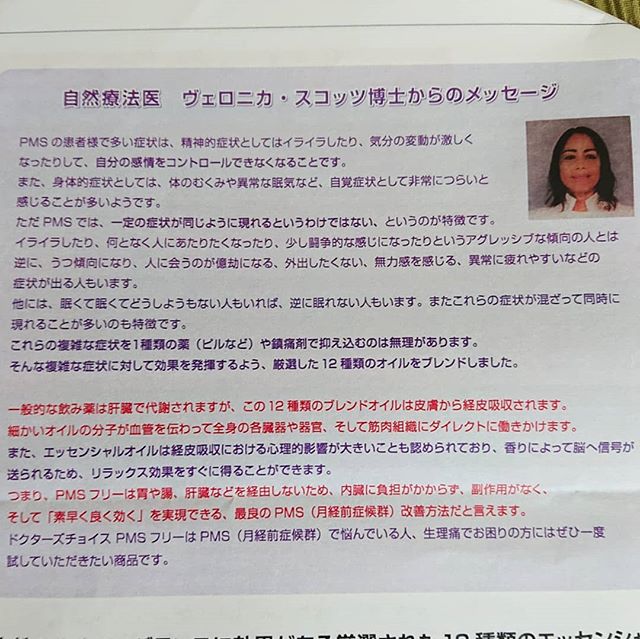 自然療法医　ヴェロニカ・スコッツ博士からのメッセージ
PMSの患者様で多い症状は、精神的症状としてはイライラしたり、気分の変動が激しく
なったりして、自分の感情をコントロールできなくなることです。
また、身体的症状としては、体のむくみや異常な眠気など、自覚症状として非常につらいと
感じることが多いようです。
ただPMSでは、一定の症状が同じように現れるというわけではない、というのが特徴です。
イライラしたり、何となく人にあたりたくなったり、少し闘争的な感じになったりというアグレッシブな傾向の人とは
逆に、うつ傾向になり、人に会うのが億劫になる、外出したくない、無力感を感じる、異常に疲れやすいなどの
症状が出る人もいます。
他には、眠くて眠くてどうしようもない人もいれば、逆に眠れない人もいます。またこれらの症状が混ざって同時に
現れることが多いのも特徴です。
これらの複雑な症状を1種類の薬（ピルなど）や鎮痛剤で抑え込むのは無理があります。
そんな複雑な症状に対して効果を発揮するよう、厳選した12種類のオイルをブレンドしました。
一般的な飲み薬は肝臓で代謝されますが、この12種類のブレンドオイルは皮膚から経皮吸収されます。
細かいオイルの分子が血管を伝わって全身の各臓器や器官、そして筋肉組織にダイレクトに働きかけます。
また、エッセンシャルオイルは経皮吸収における心理的影響が大きいことも認められており、香りによって脳へ信号が
送られるため、リラックス効果をすぐに得ることができます。
つまり、PMSフリーは胃や腸、肝臓などを経由しないため、内臓に負担がかからず、副作用がなく、
そして「素早く良く効く」を実現できる、最良のPMS（月経前症候群）改善方法だと言えます。
ドクターズチョイスPMSフリーはPMS（月経前症候群）で悩んでいる人、生理痛でお困りの方にはぜひ一度
試していただきたい商品です。
効果がある厳選された12種類のエッセンシ